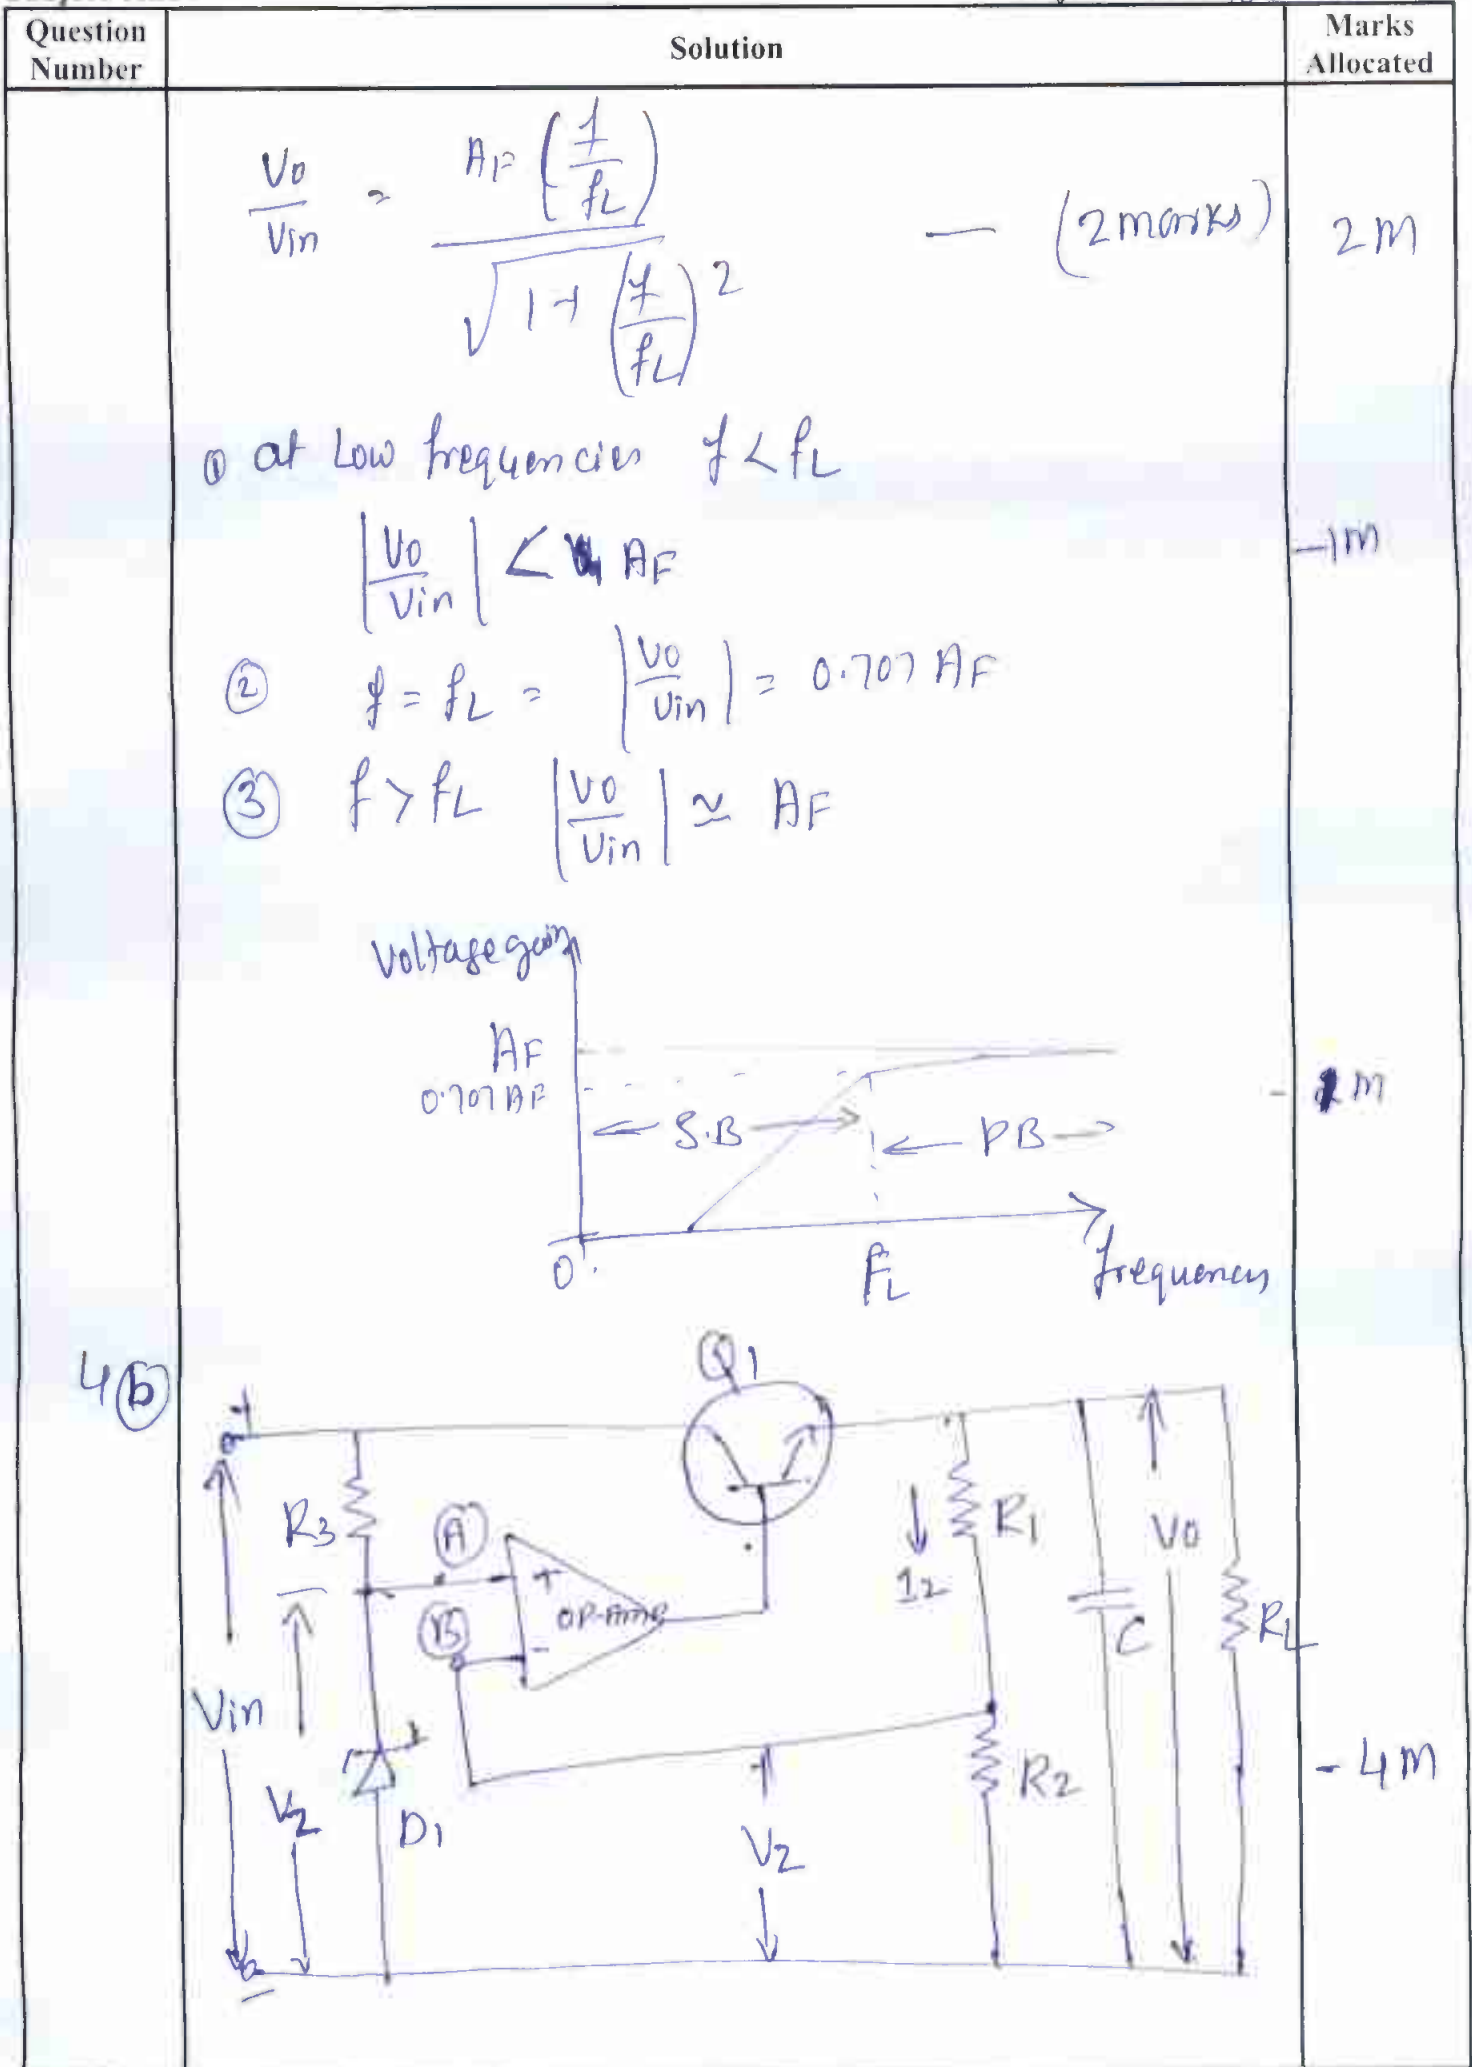 Question Number
Solution
Marks Allocated
Vo/Vin = AF (f/fL) / √(1+(f/fL)²) — (2 marks) 2M
① at Low frequencies f < fL
|Vo/Vin| < AF -1M
② f = fL = |Vo/Vin| = 0.707 AF
③ f > fL |Vo/Vin| ≃ AF
Voltage gain
AF
0.707 AF
S.B
PB
M
0
FL
frequency
4(b)
Q1
+
R3
A
+
OP-Amp
B
-
I2
R1
C
Vo
RL
Vin
VZ
D1
VZ
R2
- 4M
-